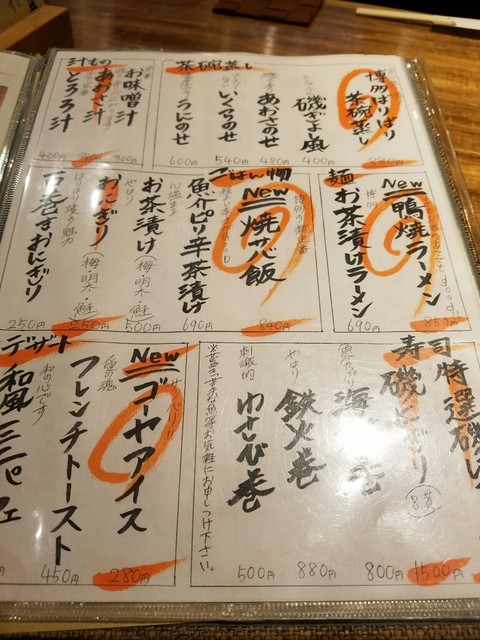 茶碗蒸し
博多ばりばり
茶碗蒸し
磯ぎよし風
400円
あおさのせ
480円
いくらのせ
540円
うにのせ
600円
汁もの
お味噌汁
300円
あおさ汁
とろろ汁
400円
麺
New
鴨焼ラーメン
850円
博多
お茶漬けラーメン
690円
ごはん物
New
焼サバ飯
840円
魚介ピリ辛茶漬け
690円
心温まる
お茶漬け(梅・明太・鮭)
500円
おにぎり(梅・明太・鮭)
250円
はりはり漬も魅力
おにぎり
250円
寿司
特選磯
1500円
磯にぎり
8貫
800円
やはり
鉄火巻
880円
刺激的
わさび巻
500円
お気軽にお申しつけ下さい。
デザート
New
ゴーヤアイス
280円
フレンチトースト
450円
和の心です
和風ミニパフェ